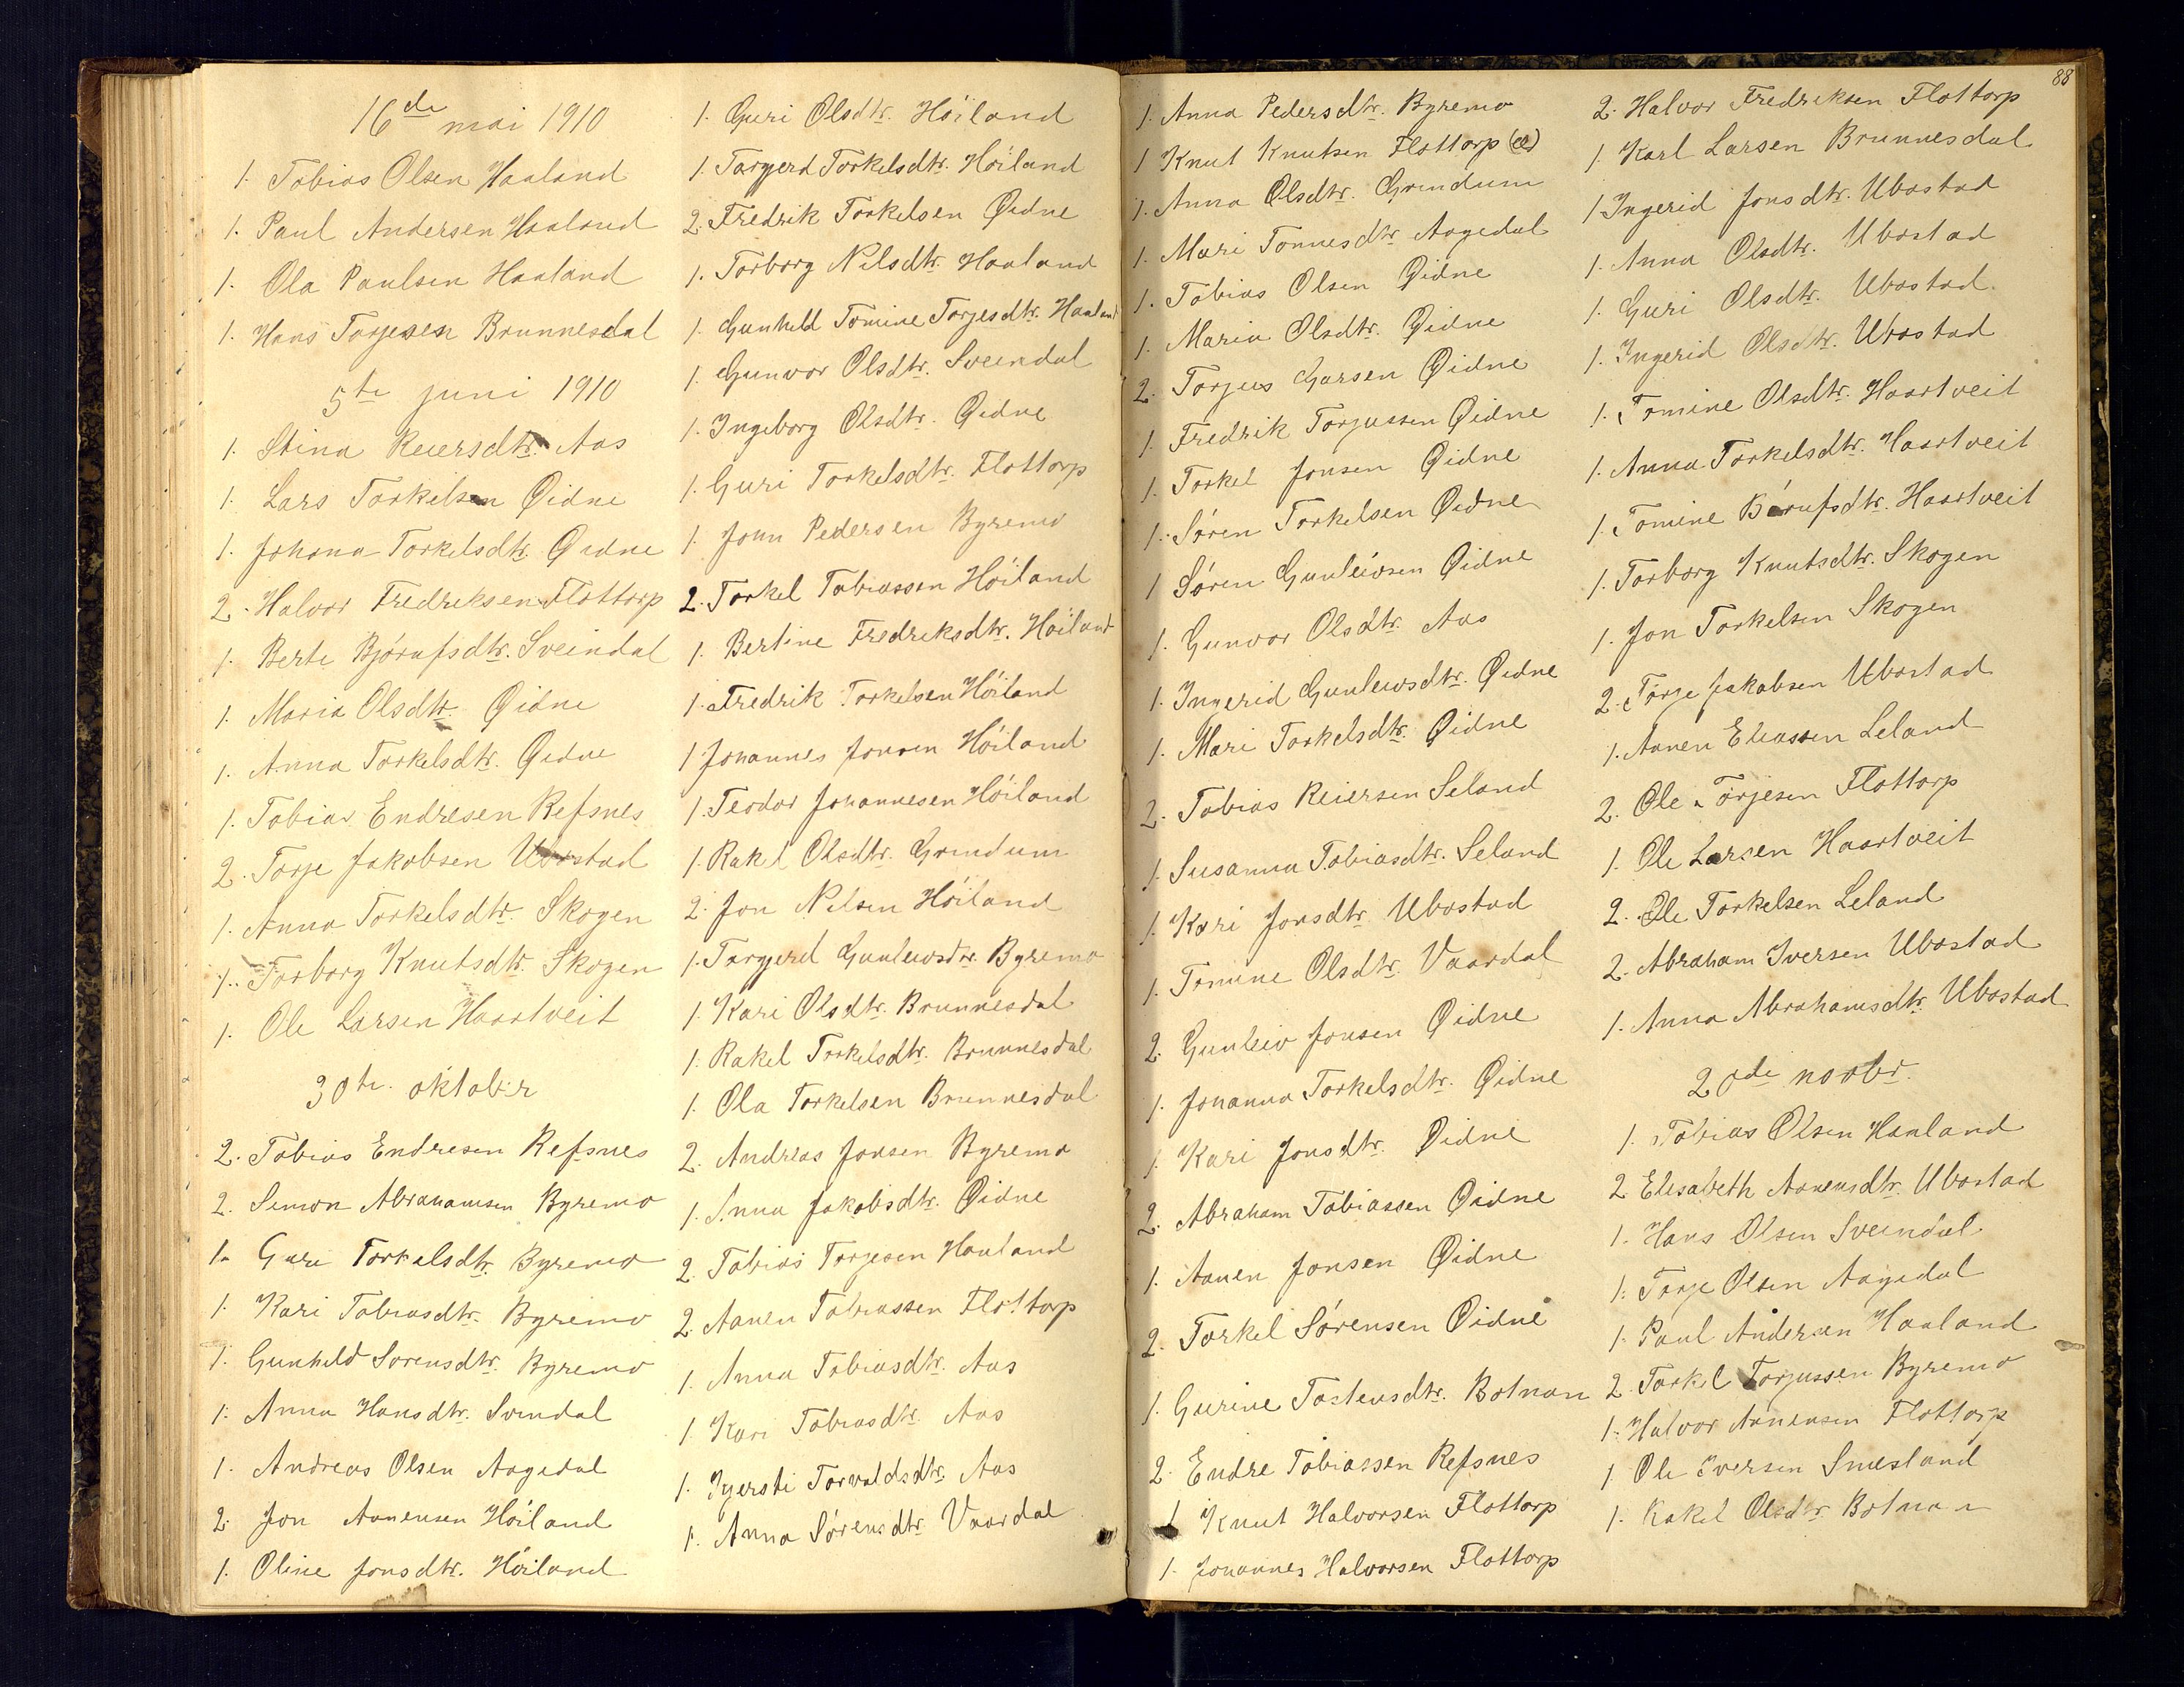 16de mai 1910
1. Tobias Olsen Haaland
1. Paul Andersen Haaland
1. Ola Paulsen Haaland
1. Hans Torjesen Brunnesdal
5te juni 1910
1. Stina Reiersdtr. Aas
1. Lars Torkelsen Øidne
1. Johana Torkelsdtr. Øidne
2. Halvor Fredriksen Flottorp
1. Berte Bjørufsdtr. Sveindal
1. Maria Olsdtr. Øidne
1. Anna Torkelsdtr. Øidne
1. Tobias Endresen Refsnes
2. Torje Jakobsen Ubostad
1. Anna Torkelsdtr. Skogen
1. Torborg Knutsdtr. Skogen
1. Ole Larsen Haartveit
30te. oktober
2. Tobias Endresen Refsnes
2. Simon Abrahamsen Byremo
1. Guri Torkelsdtr. Byremo
1. Kari Tobiasdtr. Byremo
1. Gunhild Sorensdtr. Byremo
1. Anna Hansdtr. Svindal
1. Andreas Olsen Aagedal
2. Jon Aanensen Höiland
1. Oline Jonsdtr. Höiland
1. Guri Olsdtr. Höiland
1. Targerd Torkelsdtr. Höiland
2. Fredrik Torkelsen Øidne
1. Torborg Nilsdtr. Haaland
1. Gunhild Tomine Torjesdtr. Haaland
1. Gunvor Olsdtr. Sveindal
1. Ingeborg Olsdtr. Øidne
1. Guri Torkelsdtr. Flottorp
1. John Pedersen Byremo
2. Torkel Tobiassen Höiland
1. Bertine Fredriksdtr. Höiland
1. Fredrik Torkelsen Höiland
1 Johannes Jonsen Höiland
1. Teodor Johannesen Höiland
1. Rakel Olsdtr. Grindum
2. Jon Nilsen Höiland
1. Torgerd Gunleivsdtr. Byremo
1. Kari Olsdtr. Brunnesdal
1. Rakel Torkelsdtr. Brunnesdal
1. Ola Torkelsen Brunnesdal
2. Andreas Jonsen Byremo
1. Anna Jakobsdtr. Øidne
2. Tobias Torjesen Haaland
2. Aanen Tobiassen Flottorp
1. Anna Tobiasdtr. Aas
1. Kari Tobiasdtr. Aas
1. Torvaldsdtr. Aas
1. Anna Sørensdtr. Vaardal
88
1. Anna Pedersdtr. Byremo
1 Knut Knutsen Flottorp
1. Anna Olsdtr. Grindum
1. Mari Tonnesdtr. Aagedal
1. Tobias Olsen Øidne
1. Maria Olsdtr. Øidne
2. Torjus Garsen Øidne
1. Fredrik Torjussen Øidne
1. Torkel Jonsen Øidne
1. Søren Torkelsen Øidne
1 Søren Gunleivsen Øidne
1. Gunvor Olsdtr. Aas
1. Ingerid Gunleivsdtr. Øidne
1. Mari Torkelsdtr. Øidne
2. Tobias Reiersen Seland
1. Susanna Tobiasdtr. Seland
1. Kari Jonsdtr. Ubostad
1. Tomine Olsdtr. Vaardal
2. Gunleiv Jonsen Øidne
1. Johanna Torkelsdtr. Øidne
1. Kari Jonsdtr. Øidne
2. Abraham Tobiassen Øidne
1. Aanen Jonsen Øidne
2. Torkel Sørensen Øidne
1. Gurine Tostensdtr. Botnan
2. Endre Tobiassen Refsnes
1 Knut Halvorsen Flottorp
1. Johannes Halvorsen Flottorp
2. Halvor Fredriksen Flottorp
1. Karl Larsen Brunnesdal
1 Ingerid Jonsdtr. Ubostad
1. Anna Olsdtr. Ubostad
1. Guri Olsdtr. Ubostad.
1. Ingerid Olsdtr. Ubostad
1. Tomine Olsdtr. Haartveit
1. Anna Torkelsdtr. Haartveit
1. Tomine Børufsdtr. Haartveit
1. Torborg Knutsdtr. Skogen
1. Jon Torkelsen Skogen
2. Torje Jakobsen Ubostad
1. Aanen Eliassen Leland
2. Ole Torjesen Flottorp
1. Ole Larsen Haartveit
2. Ole Torkelsen Leland
2. Abraham Iversen Ubostad
1. Anna Abrahamsdtr. Ubostad
20de novbr.
1. Tobias Olsen Haaland
2. Elisabeth Aanensdtr. Ubostad
1. Hans Olsen Sveindal
1. Torje Olsen Aagedal
1. Paul Andersen Haaland
2. Torkel Torjussen Byremo
1. Halvor Aanensen Flottorp
1. Ole Iversen Smesland
1. Rakel Olsdtr. Botnan